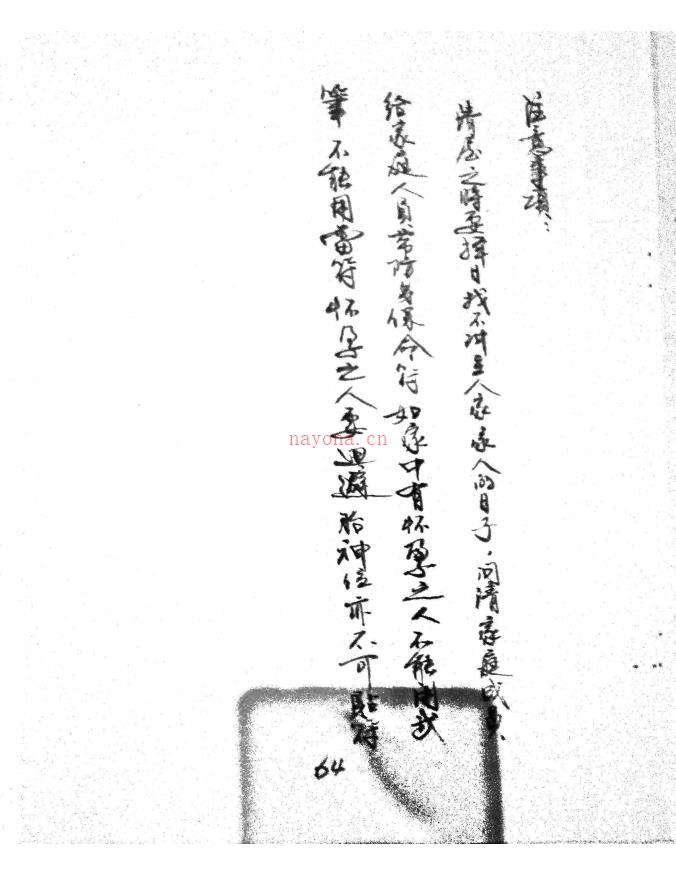 注意事項：
清屋之時要擇日找不冲主人家家人的日子，问清家庭成員、
给家庭人員带防身保命符 如家中有怀孕之人不能開武
筆 不能用當符 怀孕之人要迴避 胎神位亦不可貼符
64
nayona.cn